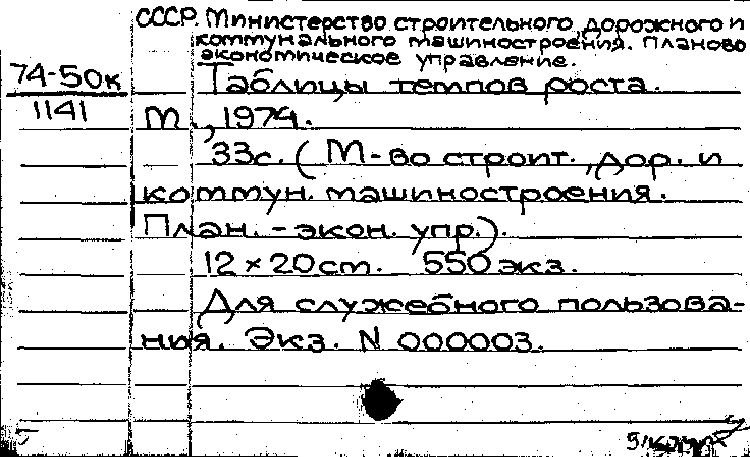 СССР. Министерство строительного, дорожного и
коммунального машиностроения. Планово
экономическое управление.
74-50к
1141
Таблицы темпов роста.
М., 1974.
33с. (М-во строит., дор. и
коммун. машиностроения.
План. - экон. упр.).
12 × 20 cm. 550 экз.
Для служебного пользова-
ния. Экз. N 000003.